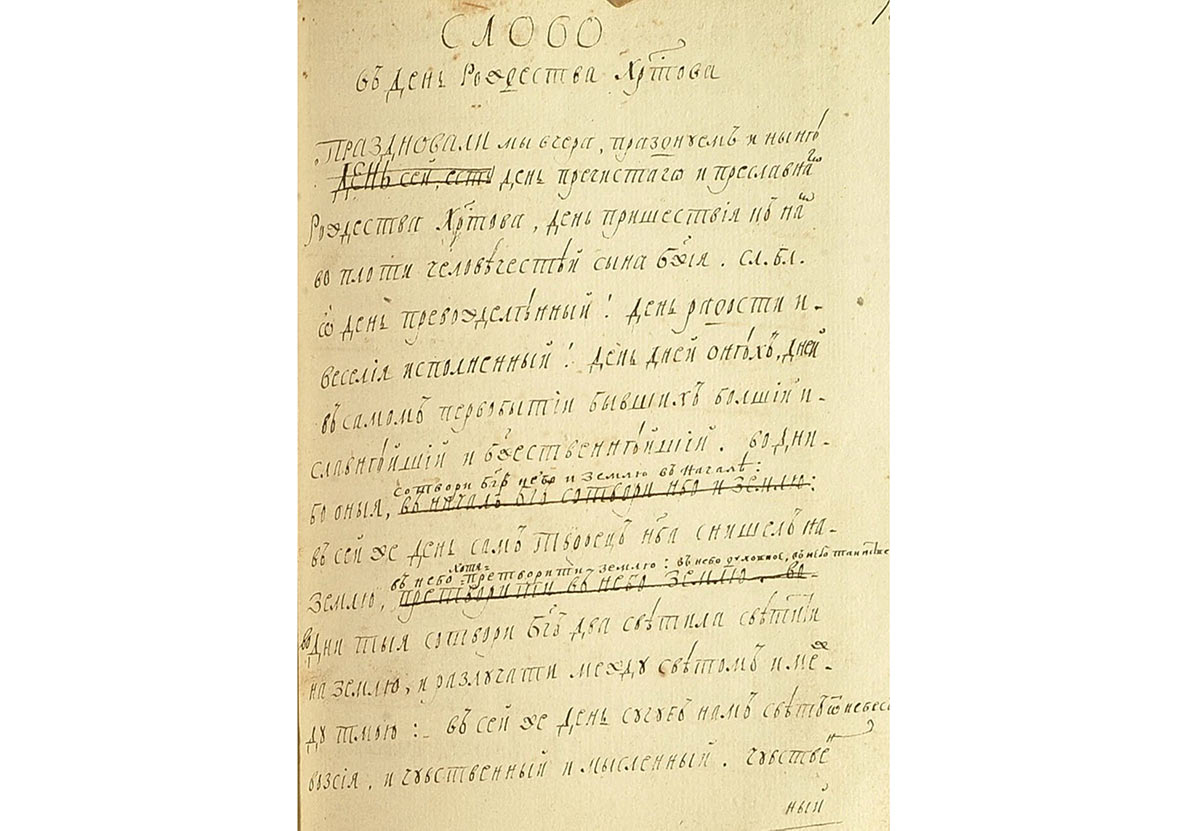 СЛОВО
въ день Рождества Хр̃това
ПРАЗДНОВАЛИ мы вчера, празднуемъ и нынѣ
ДЕНЬ сей, есть день пречистагѡ и преславнагѡ
Рождества Хр̃това, день пришествія къ намъ
во плоти человѣчестѣй сына Бж҃ія. сл. бл.
ѽ день превожделѣнный! день радости и-
веселія исполненный! день дней онѣхъ, дней
въ самомъ первобытіи бывшихъ болшій и-
славнѣйшій и бж҃ественнѣйшій. во дни-
сотвори бг҃ъ небо и землю въ началѣ:
бо оныя, въ началѣ бг҃ъ сотвори нб҃о и землю:
въ сей же день самъ творецъ нб҃а снишелъ на-
хотя-
въ небо претворити землю: въ небо духовное, въ небо таинств
землю, претворити въ небо землю. во-
во дни тыя сотвори Бг҃ъ два свѣтила свѣтити
на землю, и разлучати между свѣтомъ и меж-
ду тмою: въ сей же день сугубъ намъ свѣтъ ѿ небесе
возсія, и чувственный и мысленный. чувствен
ный